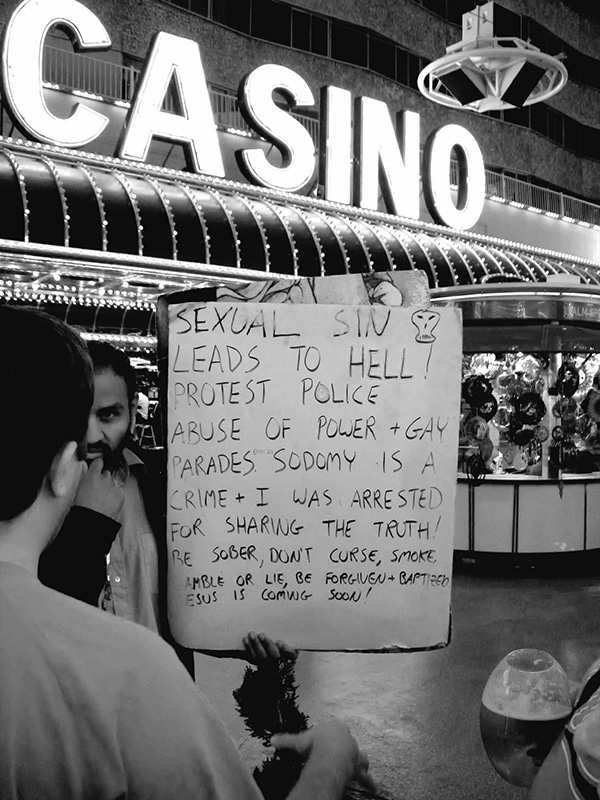 CASINO
SEXUAL SIN
LEADS TO HELL!
PROTEST POLICE
ABUSE OF POWER + GAY
PARADES. SODOMY IS A
CRIME + I WAS ARRESTED
FOR SHARING THE TRUTH!
BE SOBER, DON'T CURSE, SMOKE
AMBLE OR LIE, BE FORGIVEN + BAPTIZED
ESUS IS COMING SOON!